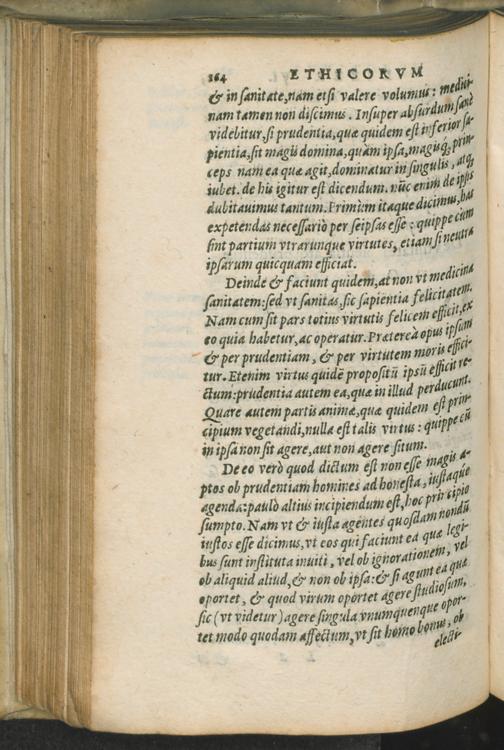 164 ETHICORVM
& in sanitate, nam etsi valere volumus: medici-
nam tamen non discimus. Insuper absurdum sanè
videbitur, si prudentia, quæ quidem est inferior sa-
pientia, sit magis domina, quàm ipsa, magisq́; prin-
ceps nam ea quæ agit, dominatur in singulis, atq́;
iubet. de his igitur est dicendum. nũc enim de ipsis
dubitauimus tantum. Primùm itaque dicimus, has
expetendas necessariò per seipsas esse: quippe cum
sint partium vtrarunque virtutes, etiam si neutra
ipsarum quicquam efficiat.
Deinde & faciunt quidem, at non vt medicina
sanitatem: sed vt sanitas, sic sapientia felicitatem.
Nam cum sit pars totius virtutis felicem efficit, ex
eo quia habetur, ac operatur. Præterea opus ipsum
& per prudentiam, & per virtutem moris effici-
tur. Etenim virtus quidẽ propositũ ipsũ efficit re-
ctum: prudentia autem ea, quæ in illud perducunt.
Quare autem partis animæ, quæ quidem est prin-
cipium vegetandi, nulla est talis virtus: quippe cũ
in ipsa non sit agere, aut non agere situm.
De eo verò quod dictum est non esse magis a-
ptos ob prudentiam homines ad honesta, iustaque
agenda: paulò altius incipiendum est, hoc principio
sumpto. Nam vt & iusta agentes quosdam nondũ
iustos esse dicimus, vt eos qui faciunt ea quæ legi-
bus sunt instituta inuiti, vel ob ignorationem, vel
ob aliquid aliud, & non ob ipsa: & si agunt ea quæ
oportet, & quod virum oportet agere studiosum,
sic (vt videtur) agere singula vnumquenque opor-
tet modo quodam affectum, vt sit homo bonus, ob
electi-